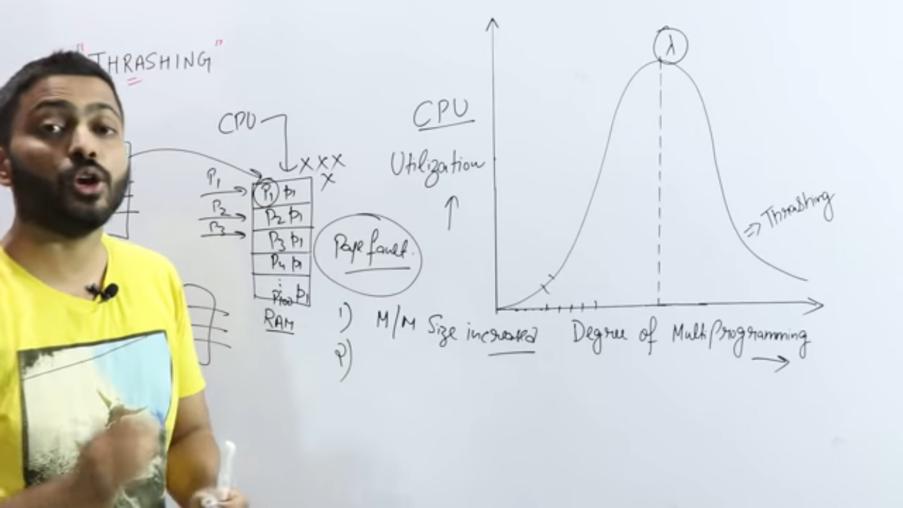 "THRASHING"
CPU
x x x
x
P1
P2
P3
P1 P1
P2 P1
P3 P1
P4 P1
⋮
P100 P1
RAM
Page fault.
1) M/M Size increased
2)
CPU
Utilization
↑
λ
⇒ Thrashing
Degree of MultiProgramming
→